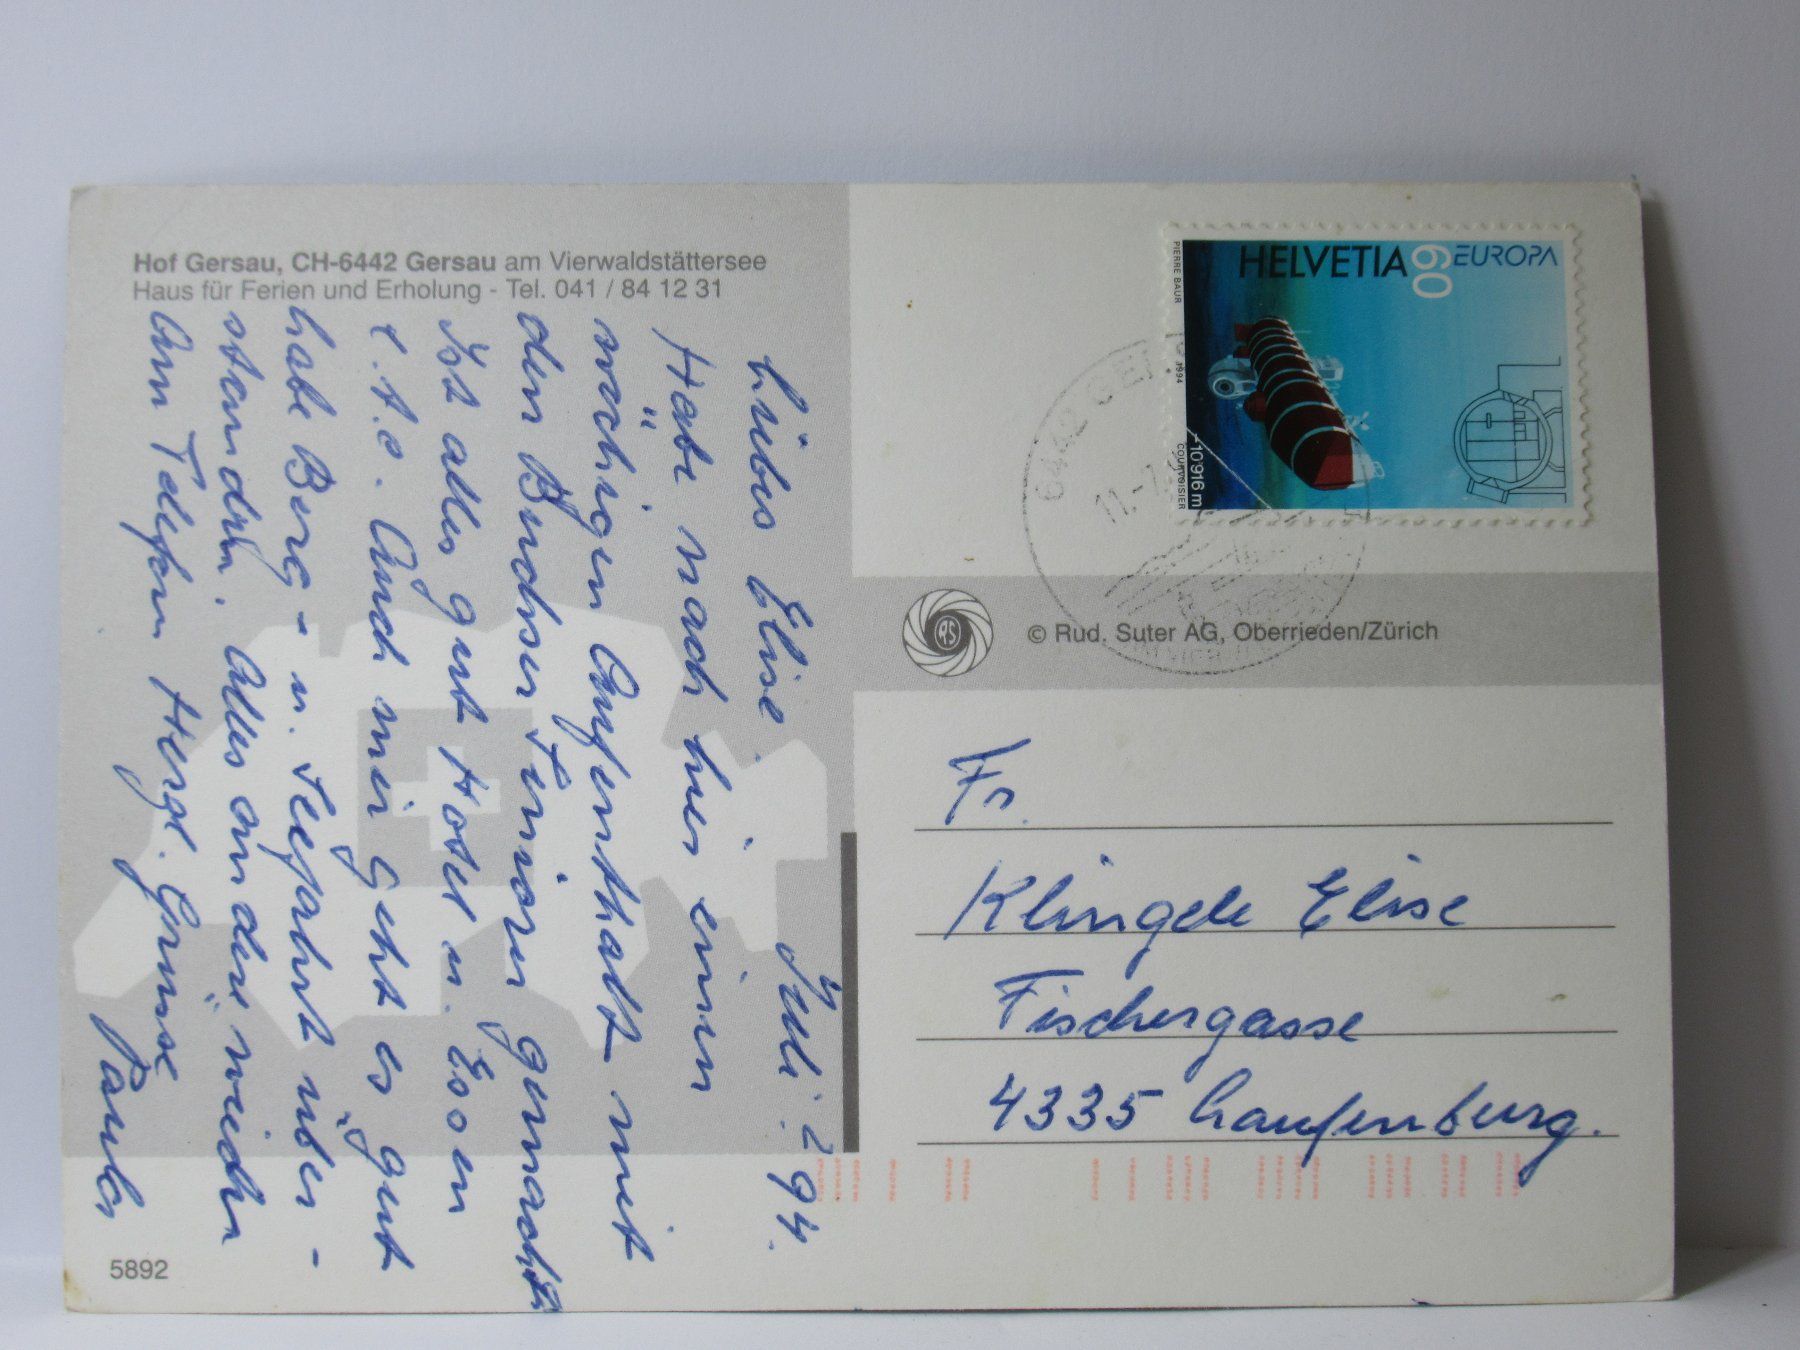 Hof Gersau, CH-6442 Gersau am Vierwaldstättersee
Haus für Ferien und Erholung - Tel. 041 / 84 12 31
Juli. 94.
Liebes Elise.
Habe noch hier einen
wöchigen Aufenthalt mit
den Buchser Senioren gemacht
Ist alles gut Hotel u. Essen
e.t.c. Auch mir geht es gut
habe Berg- u. Seefahrt über-
standen. Alles andere
Am Telefon Herzl. Grüsse
5892
HELVETIA 60 EUROPA
PIERRE BAUR
1994
-10'916 m
COURVOISIER
6442
11.-7.
© Rud. Suter AG, Oberrieden/Zürich
RS
Fr.
Klingele Elise
Fischergasse
4335 Laufenburg.